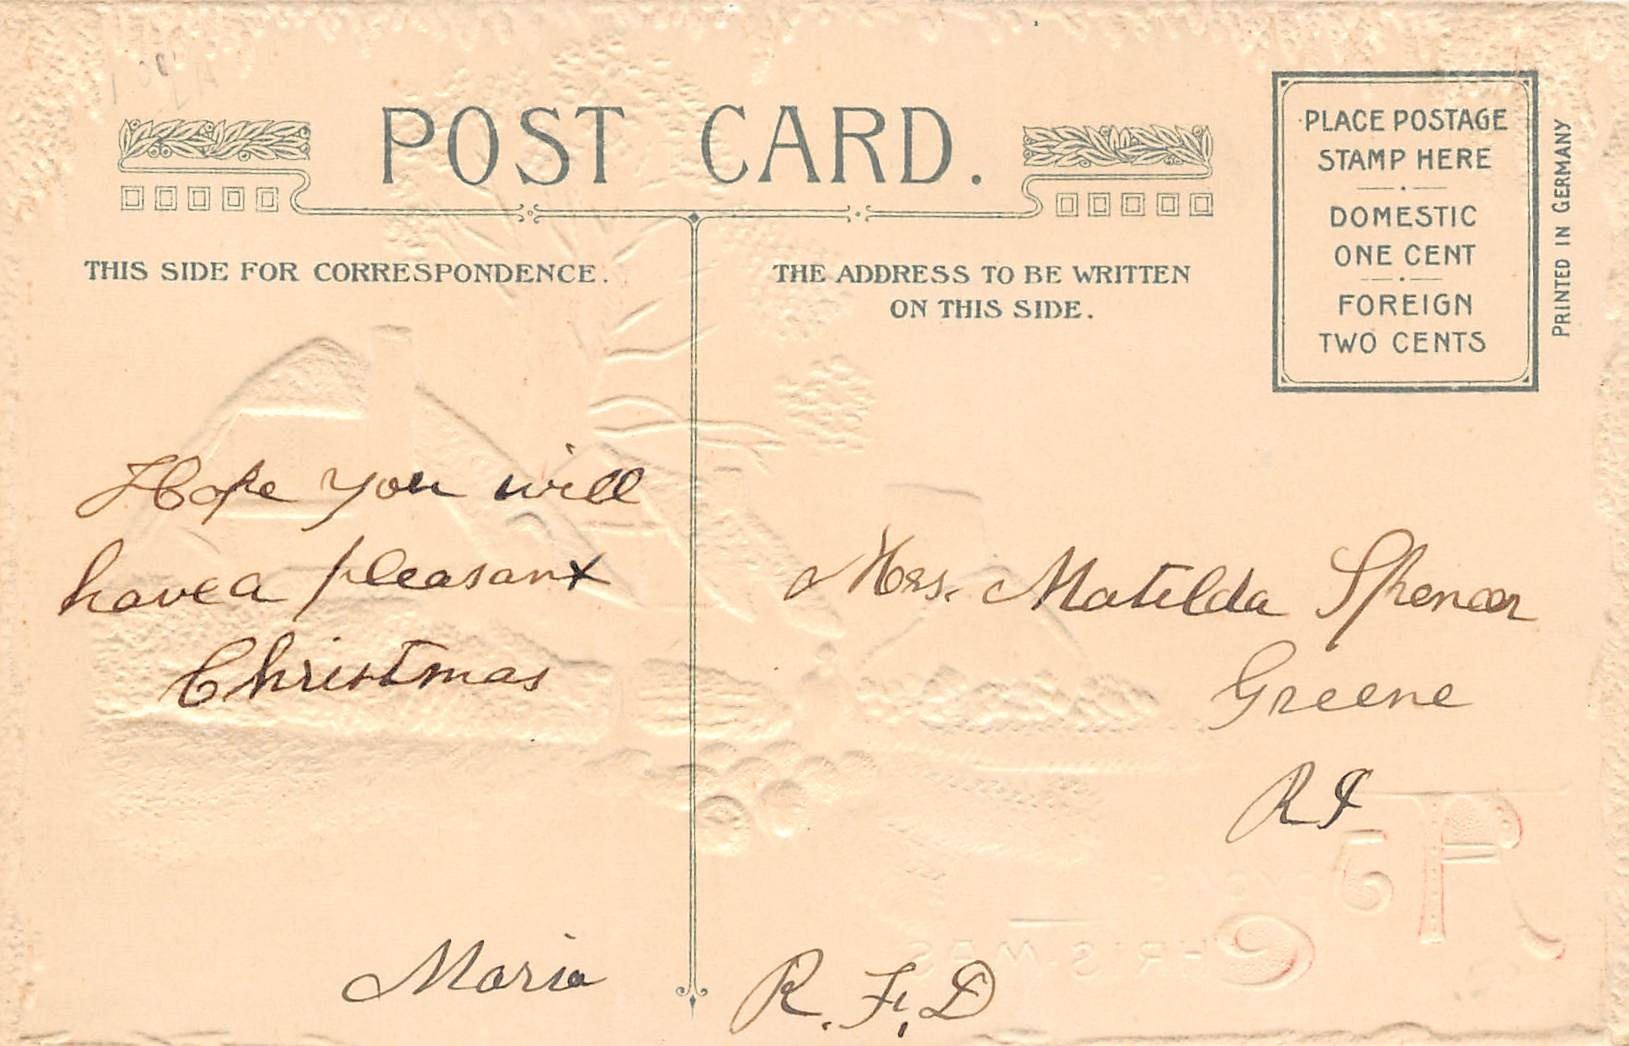 POST CARD.
THIS SIDE FOR CORRESPONDENCE.
THE ADDRESS TO BE WRITTEN
ON THIS SIDE.
PLACE POSTAGE
STAMP HERE
DOMESTIC
ONE CENT
FOREIGN
TWO CENTS
PRINTED IN GERMANY
Hope you will
have a pleasant
Christmas
Maria
Mrs. Matilda Spencer
Greene
RI
R. F. D